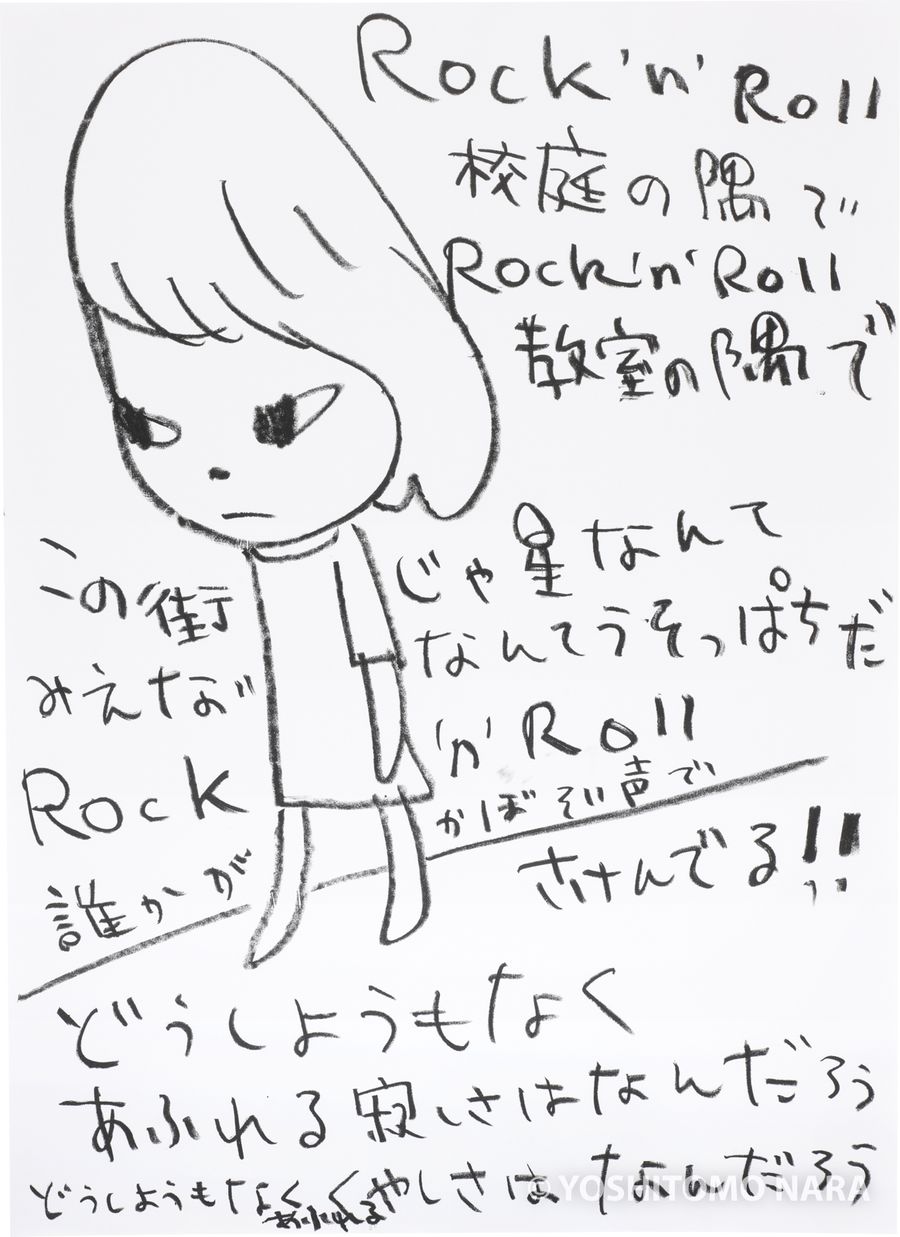 Rock 'n' Roll
校庭の隅で
Rock 'n' Roll
教室の隅で
この街じゃ星なんて
みえないなんてうそっぱちだ
Rock 'n' Roll
誰かがかぼそい声で
さけんでる!!
どうしようもなく
あふれる寂しさはなんだろう
どうしようもなくくやしさはなんだろう
あふれる
© YOSHITOMO NARA